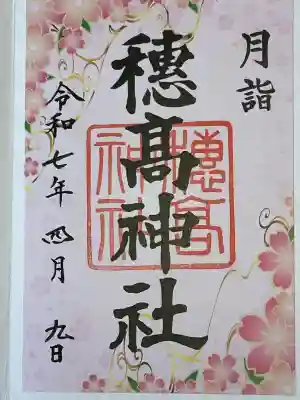 月詣
穂髙神社
穂髙
神社
令和七年 四月 九日